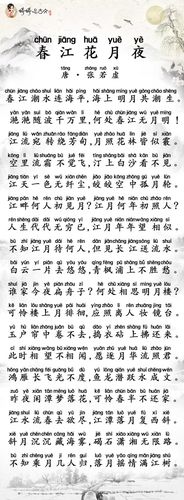 chūn jiāng huā yuè yè
春江花月夜
táng zhāng ruò xū
唐·张若虚
chūn jiāng cháo shuǐ lián hǎi píng hǎi shàng míng yuè gòng cháo shēng
春江潮水连海平,海上明月共潮生。
yàn yàn suí bō qiān wàn lǐ hé chù chūn jiāng wú yuè míng
滟滟随波千万里,何处春江无月明!
jiāng liú wǎn zhuǎn rào fāng diàn yuè zhào huā lín jiē sì xiàn
江流宛转绕芳甸,月照花林皆似霰。
kōng lǐ liú shuāng bù jué fēi tīng shàng bái shā kàn bú jiàn
空里流霜不觉飞,汀上白沙看不见。
jiāng tiān yí sè wú xiān chén jiǎo jiǎo kōng zhōng gū yuè lún
江天一色无纤尘,皎皎空中孤月轮。
jiāng pàn hé rén chū jiàn yuè jiāng yuè hé nián chū zhào rén
江畔何人初见月?江月何年初照人?
rén shēng dài dài wú qióng yǐ jiāng yuè nián nián wàng xiāng sì
人生代代无穷已,江月年年望相似。
bù zhī jiāng yuè dài hé rén dàn jiàn cháng jiāng sòng liú shuǐ
不知江月待何人,但见长江送流水。
bái yún yí piàn qù yōu yōu qīng fēng pǔ shàng bú shèng chóu
白云一片去悠悠,青枫浦上不胜愁。
shuí jiā jīn yè piān zhōu zǐ hé chù xiāng sī míng yuè lóu
谁家今夜扁舟子?何处相思明月楼?
kě lián lóu shàng yuè pái huái yīng zhào lí rén zhuāng jìng tái
可怜楼上月徘徊,应照离人妆镜台。
yù hù lián zhōng juǎn bú qù dǎo yī zhēn shàng fú huán lái
玉户帘中卷不去,捣衣砧上拂还来。
cǐ shí xiāng wàng bù xiāng wén yuàn zhú yuè huá liú zhào jūn
此时相望不相闻,愿逐月华流照君。
hóng yàn cháng fēi guāng bú dù yú lóng qián yuè shuǐ chéng wén
鸿雁长飞光不度,鱼龙潜跃水成文。
zuó yè xián tán mèng luò huā kě lián chūn bàn bù huán jiā
昨夜闲潭梦落花,可怜春半不还家。
jiāng shuǐ liú chūn qù yù jìn jiāng tán luò yuè fù xī xié
江水流春去欲尽,江潭落月复西斜。
xié yuè chén chén cáng hǎi wù jié shí xiāo xiāng wú xiàn lù
斜月沉沉藏海雾,碣石潇湘无限路。
bù zhī chéng yuè jǐ rén guī luò yuè yáo qíng mǎn jiāng shù
不知乘月几人归,落月摇情满江树。